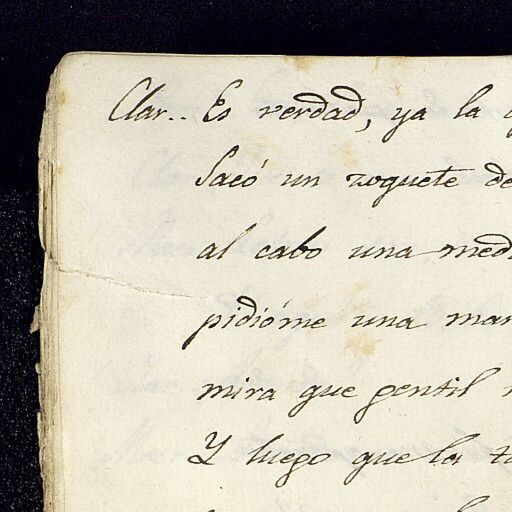 Clar.. Es verdad, ya la
Sacó un zoquete de
al cabo una med
pidióme una man
mira que gentil
Y luego que la